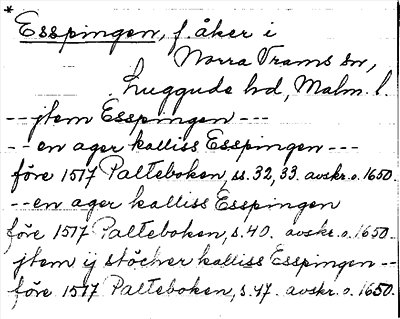 * Esspingen, f. åker i
Norra Vrams sn,
Luggude hd, Malm. l.
--- jtem Esspingen ---
-- en ager kalliss Esspingen ---
före 1517 Palteboken, ss. 32, 33. avskr. o. 1650.
-- en ager kalliss Esspingen
före 1517 Palteboken, s. 40. avskr. o. 1650.
jtem ij stöcher kalliss Esspingen --
före 1517 Palteboken, s. 47. avskr. o. 1650.